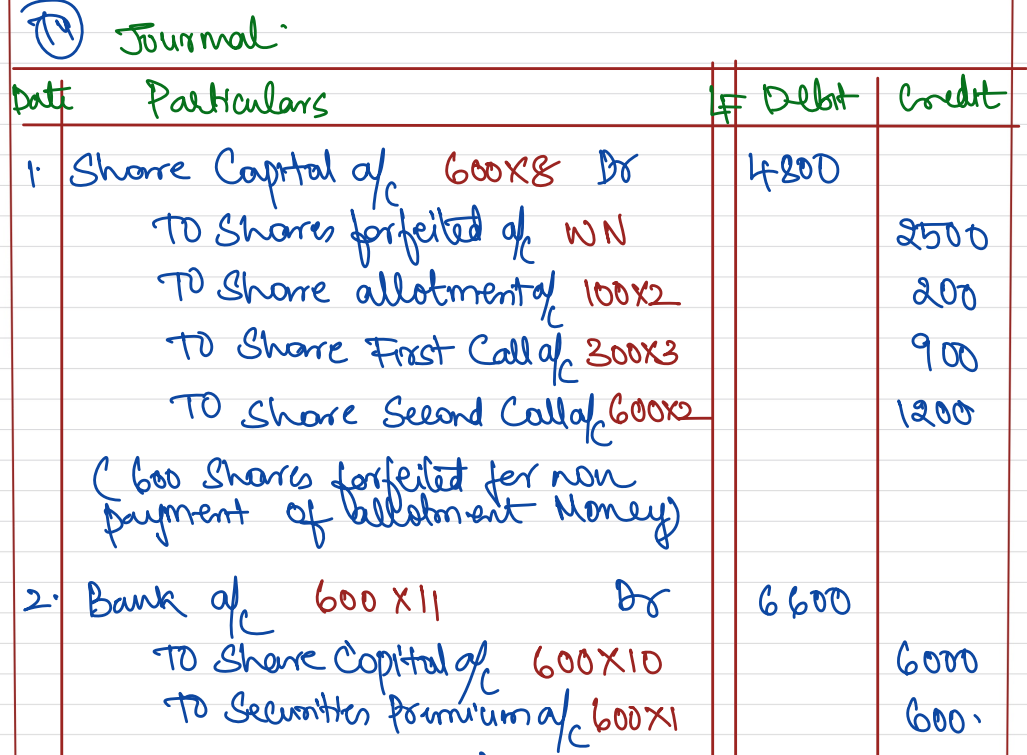 T4 Journal.
Date Particulars LF Debit Credit
1. Share Capital a/c 600X8 Dr 4800
To Shares forfeited a/c WN 2500
To Share allotment a/c 100X2 200
To Share First Call a/c 300X3 900
To Share Second Call a/c 600X2 1200
(600 Shares forfeited for non
payment of allotment Money)
2. Bank a/c 600X11 Dr 6600
To Share Capital a/c 600X10 6000
To Securities Premium a/c 600X1 600.